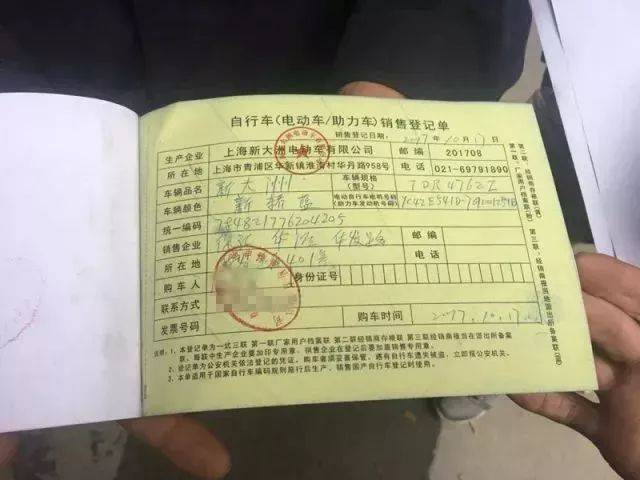 自行车(电动车/助力车)销售登记单
销售登记日期: 2017年10月17日
生产企业 上海新大洲电动车有限公司 邮编 201708
所在地 上海市青浦区华新镇淮海村华丹路958号 电话 021-69791890
车辆品名 新大洲 车辆规格(型号) TDR4762Z
车辆颜色 电动自行车电机号码 助力车发动机号码
统一编码
销售企业 华发路 邮编
所在地 401号 电话
购车人 身份证号
联系方式
发票号码 购车时间 2017.10.17
说明: 1、本登记单为一式三联 第一联厂家用户档案联 第二联经销商存根联 第三联经销商报送当地派出所备案
联、每联中生产企业要加印专用章、销售企业在登记后要加盖销售专用章。
2、登记单为公安机关依法登记的凭证,购车者须妥善保管、遇自行车遗失被盗,立即报公安机关。
3、本单适用于国家自行车编码规则施行后生产、销售国产自行车登记时使用。
第一联:厂家用户档案联(粉)
第二联:经销商存根联(黄)